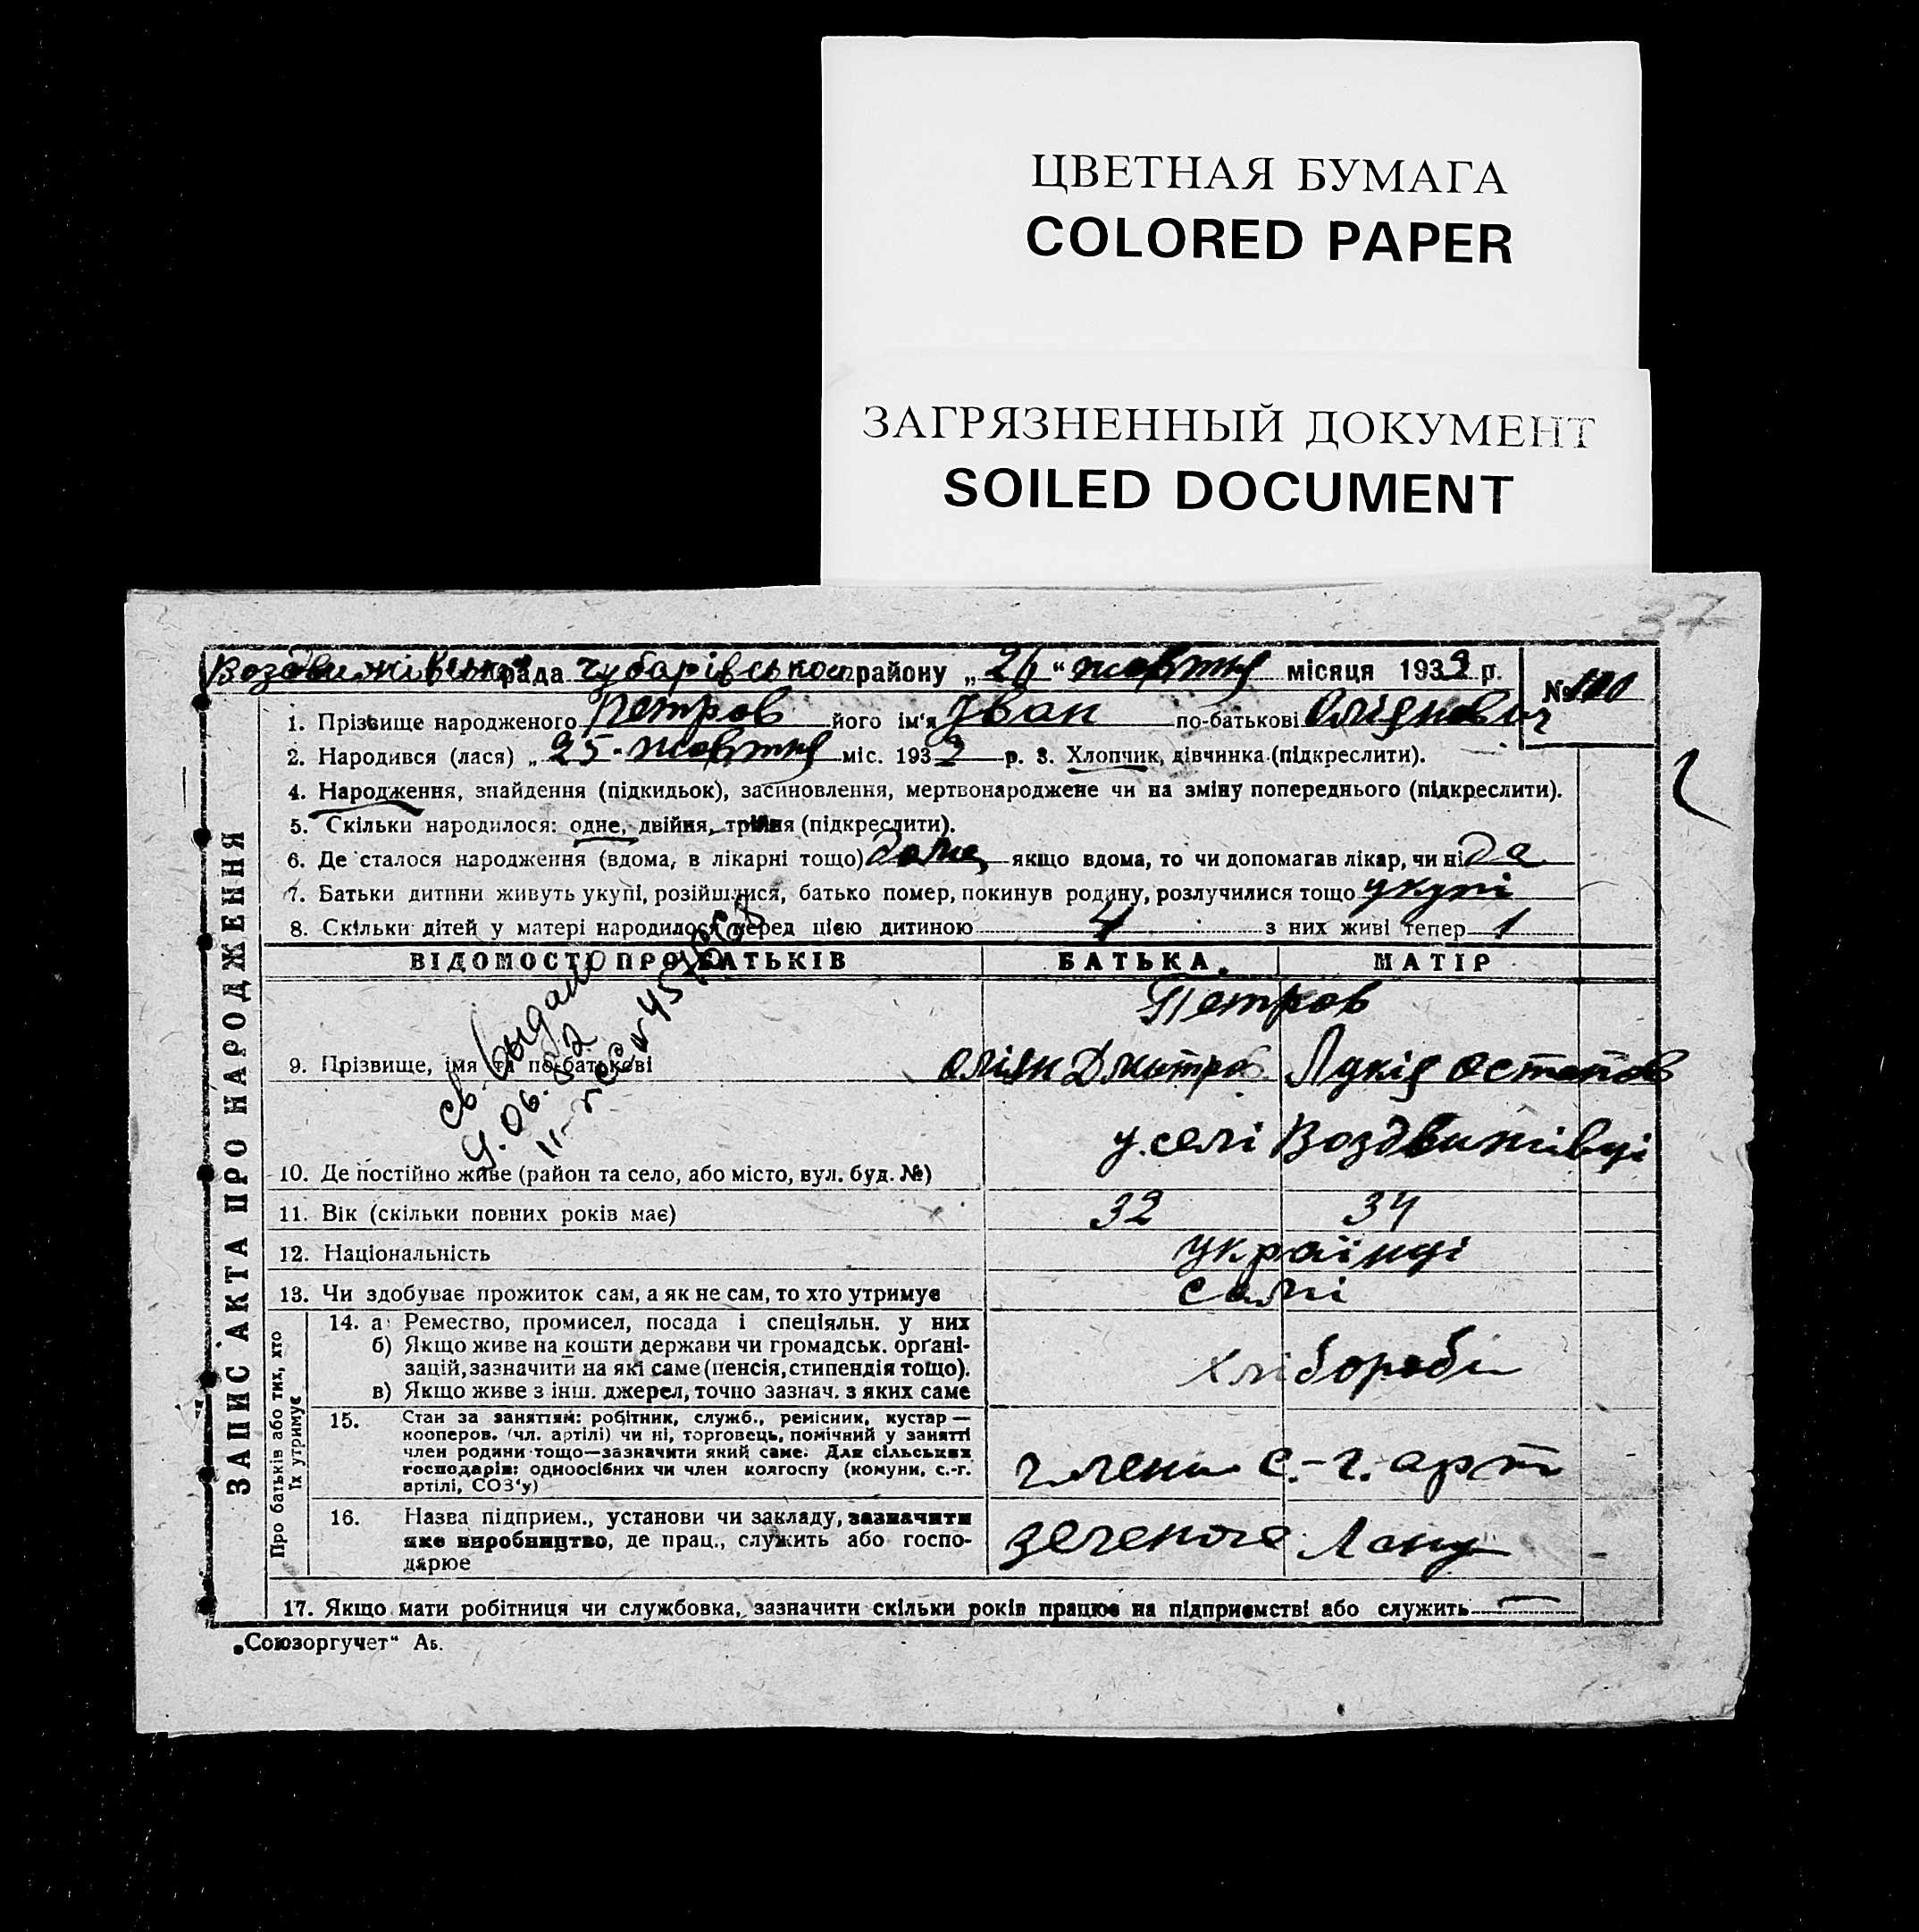 ЦВЕТНАЯ БУМАГА
COLORED PAPER
ЗАГРЯЗНЕННЫЙ ДОКУМЕНТ
SOILED DOCUMENT
37
рада Чубарівського району „26“ жовтня місяця 193 р.
1. Прізвище народженого Петров його ім'я Іван по-батькові
2. Народився (лася) „25 - жовтня міс. 193 р. 3. Хлопчик, дівчинка (підкреслити).
4. Народження, знайдення (підкидьок), засиновлення, мертвонароджене чи на зміну попереднього (підкреслити).
5. Скільки народилося: одне, двійня, трійня (підкреслити).
6. Де сталося народження (вдома, в лікарні тощо) дома якщо вдома, то чи допомагав лікар, чи ні да
7. Батьки дитини живуть укупі, розійшлися, батько помер, покинув родину, розлучилися тощо укупі
8. Скільки дітей у матері народилося перед цією дитиною 4 з них живі тепер 1
ЗАПИС АКТА ПРО НАРОДЖЕННЯ
ВІДОМОСТІ ПРО БАТЬКІВ БАТЬКА МАТІР
Петров
9. Прізвище, імя та по-батькові Дмитров Лукія Остапов
св. выдано
у селі Воздвижівці
10. Де постійно живе (район та село, або місто, вул. буд. №)
11. Вік (скільки повних років має) 32 34
12. Національність українці
13. Чи здобуває прожиток сам, а як не сам, то хто утримує самі
Про батьків або тих, хто їх утримує
14. а) Ремество, промисел, посада і спеціяльн. у них
б) Якщо живе на кошти держави чи громадськ. орґані-
зацій, зазначити на які саме (пенсія, стипендія тощо).
в) Якщо живе з інш. джерел, точно зазнач. з яких саме
хлібороби
15. Стан за заняттям: робітник, служб., ремісник, кустар —
кооперов. (чл. артілі) чи ні, торговець, помічний у занятті
член родини тощо—зазначити який саме. Для сільських
господарів: одноосібних чи член колгоспу (комуни, с.-г.
артілі, СОЗ'у)
члени с.-г. арт
16. Назва підприєм., установи чи закладу, зазначити
яке виробництво, де прац., служить або госпо-
дарює
Лану
17. Якщо мати робітниця чи службовка, зазначити скільки років працює на підприємстві або служить —
„Союзоргучет“ Аь.